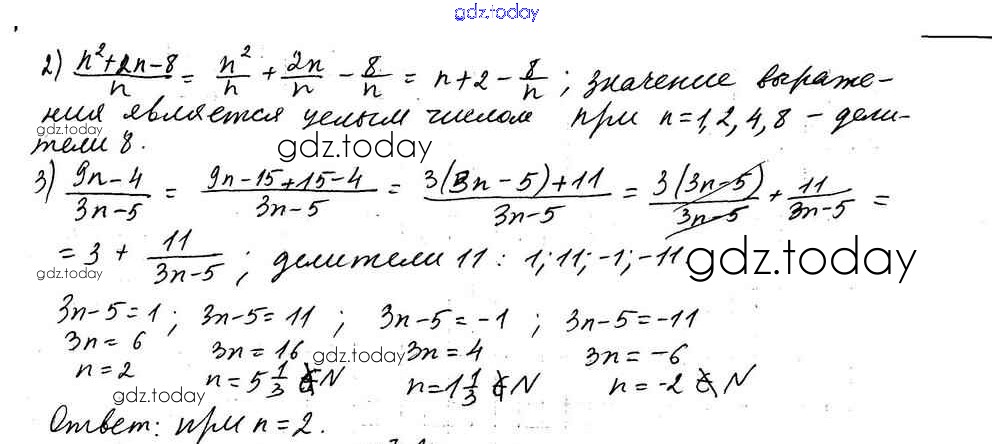 gdz.today
2) (n²+2n-8)/n = n²/n + 2n/n - 8/n = n+2 - 8/n ; значение выраже-
ния является целым числом при n=1, 2, 4, 8 - дели-
gdz.today
тели 8.
gdz.today
3) (9n-4)/(3n-5) = (9n-15+15-4)/(3n-5) = (3(3n-5)+11)/(3n-5) = 3(3n-5)/(3n-5) + 11/(3n-5) =
= 3 + 11/(3n-5) ; делители 11 : 1; 11; -1; -11
gdz.today
gdz.today
3n-5=1 ; 3n-5=11 ; 3n-5=-1 ; 3n-5=-11
3n=6 3n=16 3n=4 3n=-6
gdz.today
n=2 n=5 1/3 ∉ N n=1 1/3 ∉ N n=-2 ∉ N
gdz.today
gdz.today
Ответ: при n=2.